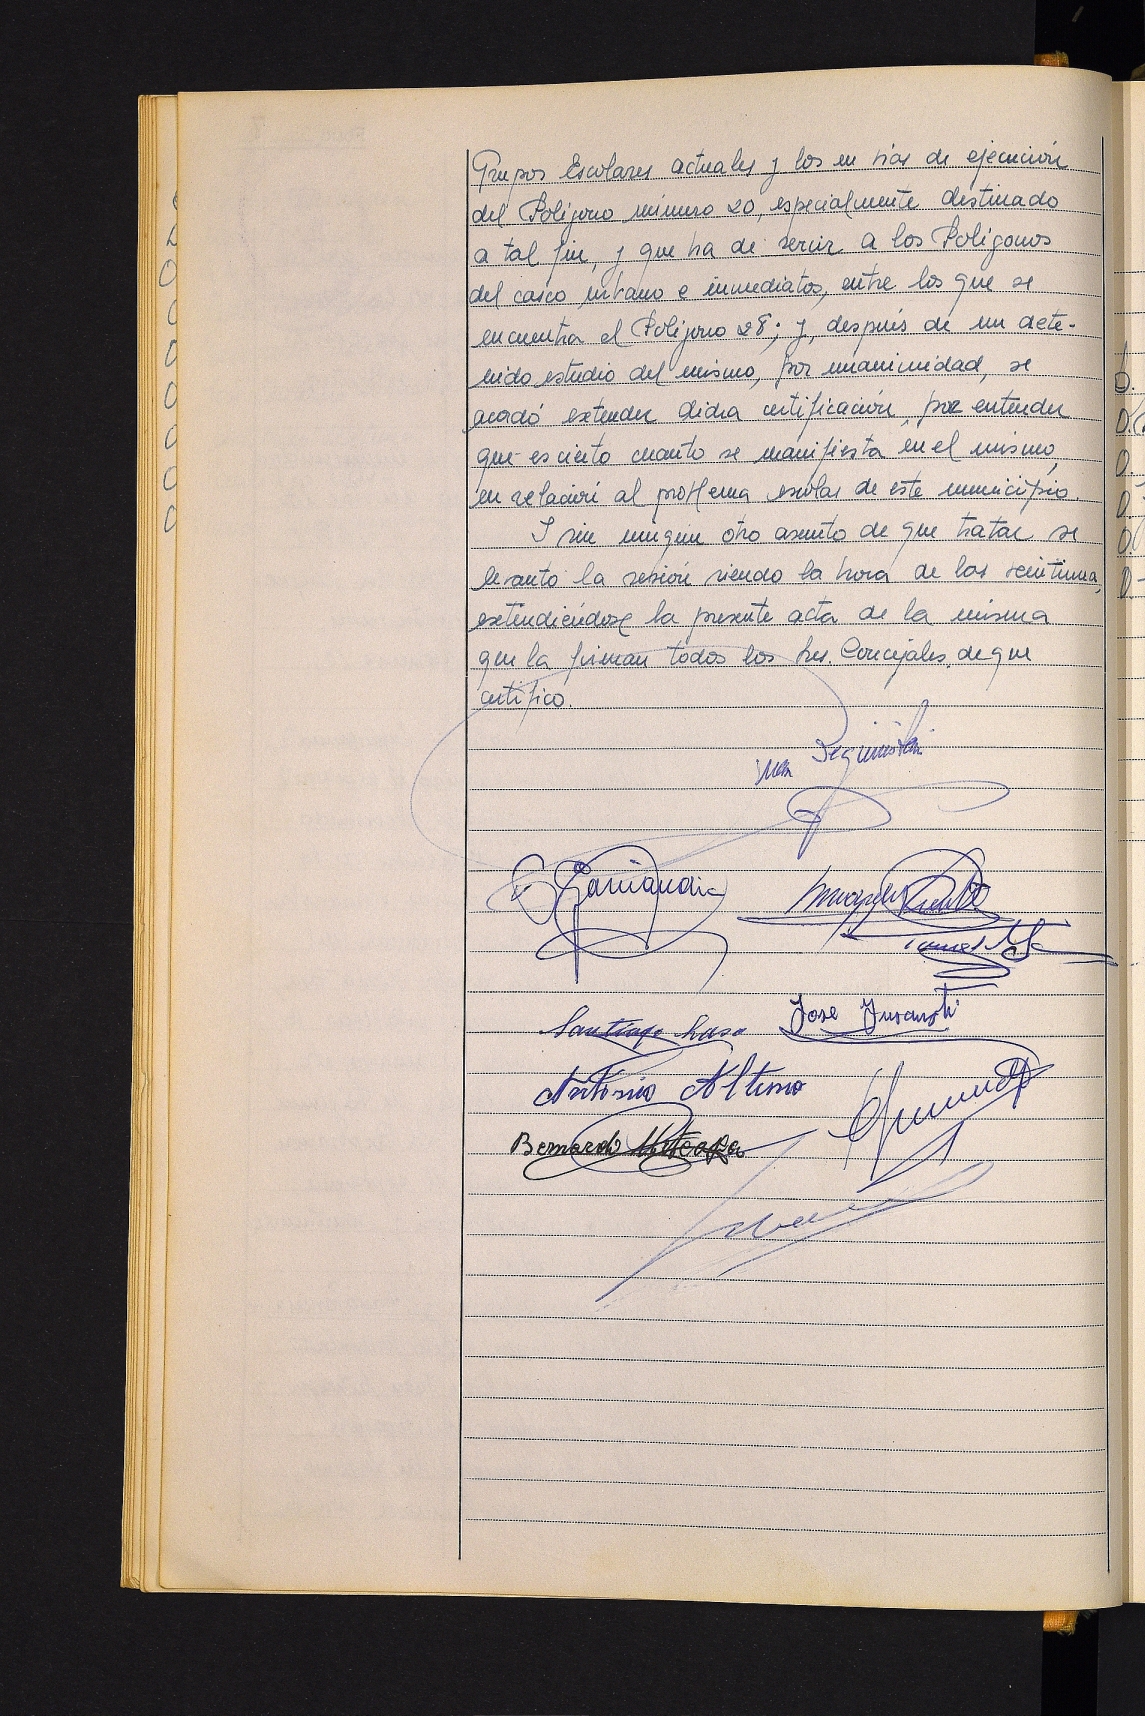 Grupos Escolares actuales y los en vías de ejecución
del Polígono número 20, especialmente destinado
a tal fin, y que ha de servir a los Polígonos
del casco urbano e inmediatos, entre los que se
encuentra el Polígono 28; y, después de un dete-
nido estudio del mismo, por unanimidad, se
acordó extender dicha certificación, por entender
que es cierto cuanto se manifiesta en el mismo,
en relación al problema escolar de este municipio.
Y sin ningún otro asunto de que tratar se
levantó la sesión siendo la hora de las
extendiéndose la presente acta de la misma
que la firman todos los Srs. Concejales, de que
certifico.
Garciandia
Santiago Lasa
Jose
Antonio Altuna
Bernardo